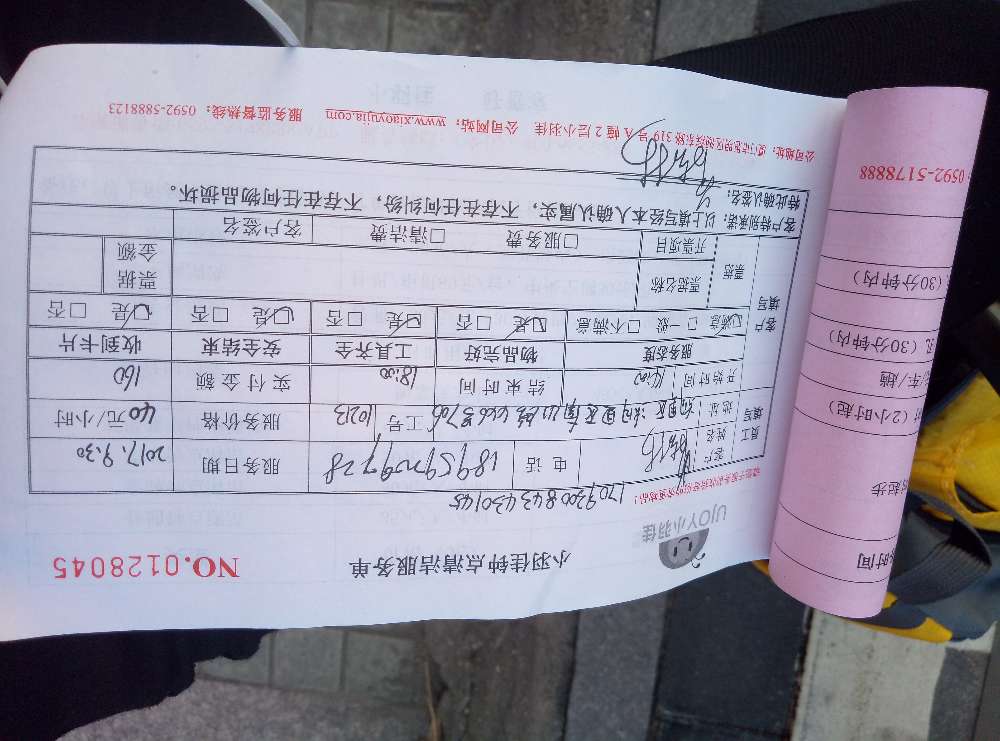 UJOY小羽佳
小羽佳钟点清洁服务单
NO.0128045
1709300843430145
客户姓名 电话 服务日期 2017.9.30
员工填写
地址 工号 10213 服务价格 40元/小时
开始时间 14:00 结束时间 18:00 实付金额 160
服务态度 物品完好 工具齐全 安全结束 收到卡片
客户填写
☑满意 □一般 □不满意 ☑是 □否 ☑是 □否 ☑是 □否 ☑是 □否
票据 票据名称 票据金额
开票项目 □服务费 □清洁费 客户签名
客户特别承诺：以上填写经本人确认属实，不存在任何纠纷，不存在任何物品损坏。
特此确认签名：
319号A幢2层小羽佳 公司网站：www.xiaoyujia.com 服务监督热线：0592-5888123
0592-5178888
(30分钟内)
(30分钟内)
(2小时起)
起步
时间